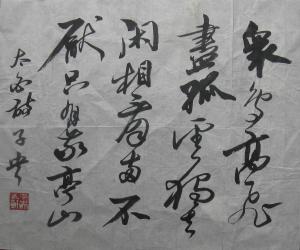 衆鳥高飛
盡孤雲獨去
閑相看兩不
厭只有敬亭山
太白詩子安